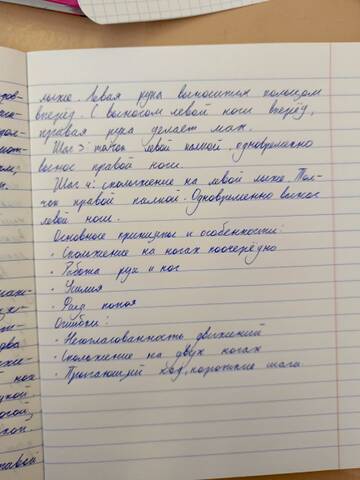 лыже. Левая рука выносится полностью
вперёд. С выносом левой ноги вперёд,
правая рука делает мах.
Шаг 3: толчок левой палкой, одновременно
вынос правой ноги.
Шаг 4: скольжение на левой лыже. Тол-
чок правой палкой. Одновременно вынос
левой ноги.
Основные принципы и особенности:
• Скольжение на ногах поочерёдно
• Работа рук и ног
• Усилия
• Фазы
Ошибки:
• Несогласованность движений
• Скольжение на двух ногах
• Прыгающий ход, короткие шаги